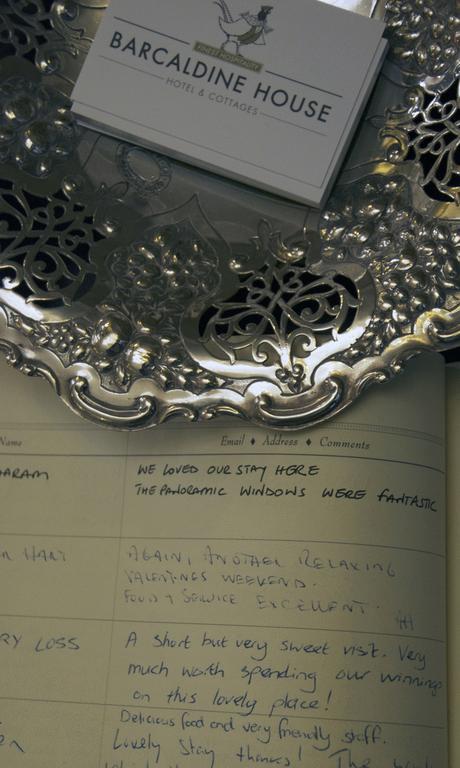 FINEST HOSPITALITY
BARCALDINE HOUSE
HOTEL & COTTAGES
Name
Email ♦ Address ♦ Comments
ARAM
WE LOVED OUR STAY HERE
THE PANORAMIC WINDOWS WERE FANTASTIC
HART
AGAIN, ANOTHER RELAXING
VALENTINES WEEKEND.
FOOD + SERVICE EXCELLENT.
RY LOSS
A short but very sweet visit. Very
much worth spending our winnings
on this lovely place!
Delicious food and very friendly staff.
Lovely stay thanks! The